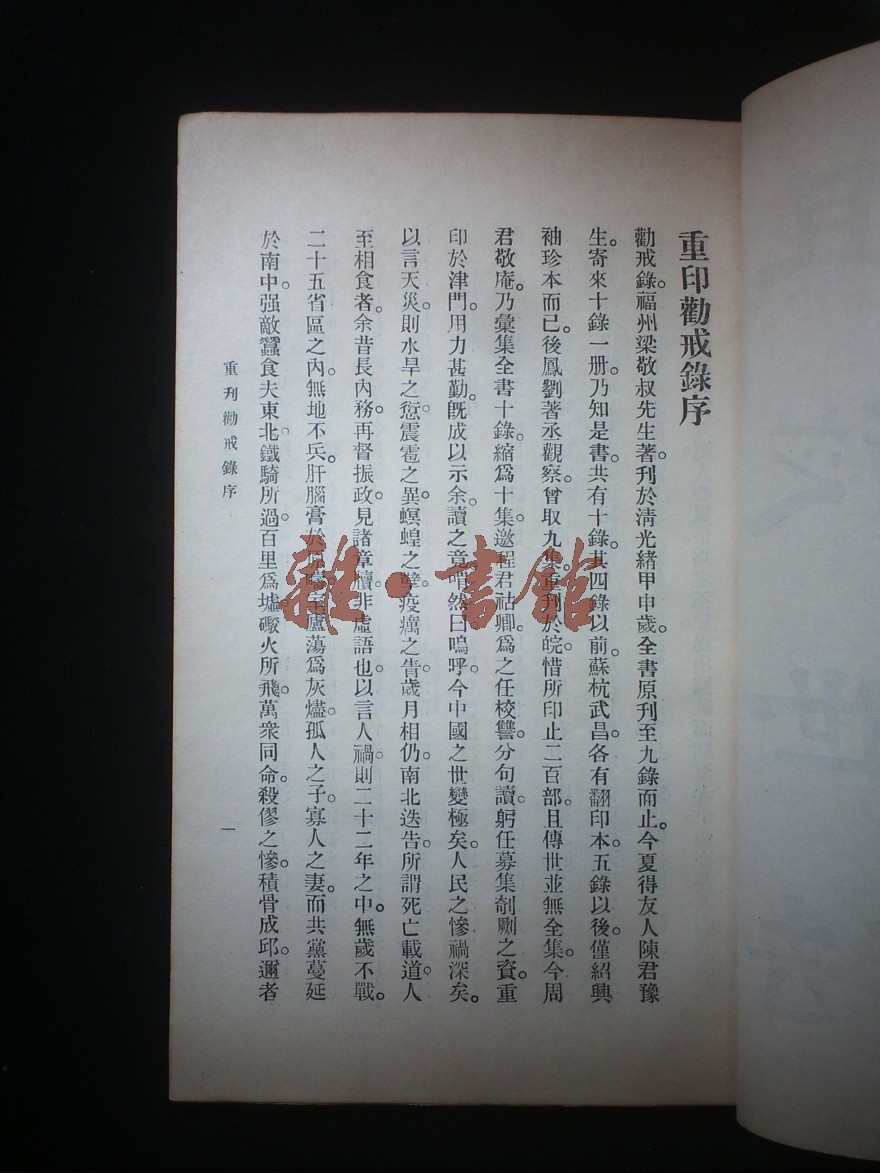 重印勸戒錄序
勸戒錄。福州梁敬叔先生著。刊於淸光緖甲申歲。全書原刊至九錄而止。今夏得友人陳君豫
生。寄來十錄一册。乃知是書。共有十錄。其四錄以前。蘇杭武昌。各有翻印本。五錄以後。僅紹興
袖珍本而已。後鳳劉著丞觀察。曾取九集。重刊於皖。惜所印止二百部。且傳世並無全集。今周
君敬庵。乃彙集全書十錄。縮爲十集。邀程君祜卿。爲之任校讐。分句讀。躬任募集剞劂之資。重
印於津門。用力甚勤。旣成以示余。讀之竟。喟然曰。嗚呼。今中國之世變極矣。人民之慘禍深矣。
以言天災。則水旱之愆。震雹之異。螟蝗之孽。疫癘之眚。歲月相仍。南北迭告。所謂死亡載道。人
至相食者。余昔長內務。再督振政。見諸章牘。非虛語也。以言人禍。則二十二年之中。無歲不戰。
二十五省區之內。無地不兵。肝腦膏於原野。室廬蕩爲灰燼。孤人之子。寡人之妻。而共黨蔓延
於南中。强敵蠶食夫東北。鐵騎所過。百里爲墟。礮火所飛。萬衆同命。殺僇之慘。積骨成邱。邇者
重刊勸戒錄序
一
雜·書館